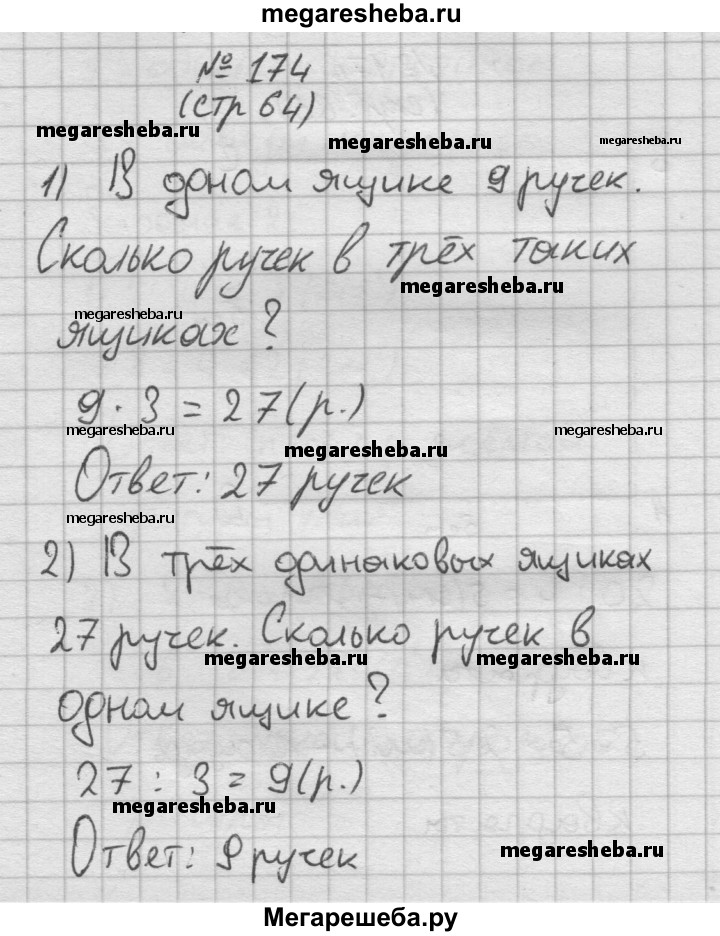 megaresheba.ru
№ 174
(стр 64)
megaresheba.ru
megaresheba.ru
megaresheba.ru
1) В одном ящике 9 ручек.
Сколько ручек в трёх таких
megaresheba.ru
megaresheba.ru
ящиках?
9 · 3 = 27 (р.)
megaresheba.ru
megaresheba.ru
megaresheba.ru
Ответ: 27 ручек
megaresheba.ru
2) В трёх одинаковых ящиках
27 ручек. Сколько ручек в
megaresheba.ru
megaresheba.ru
одном ящике?
27 : 3 = 9 (р.)
megaresheba.ru
Ответ: 9 ручек
megaresheba.ru
Мегарешеба.ру